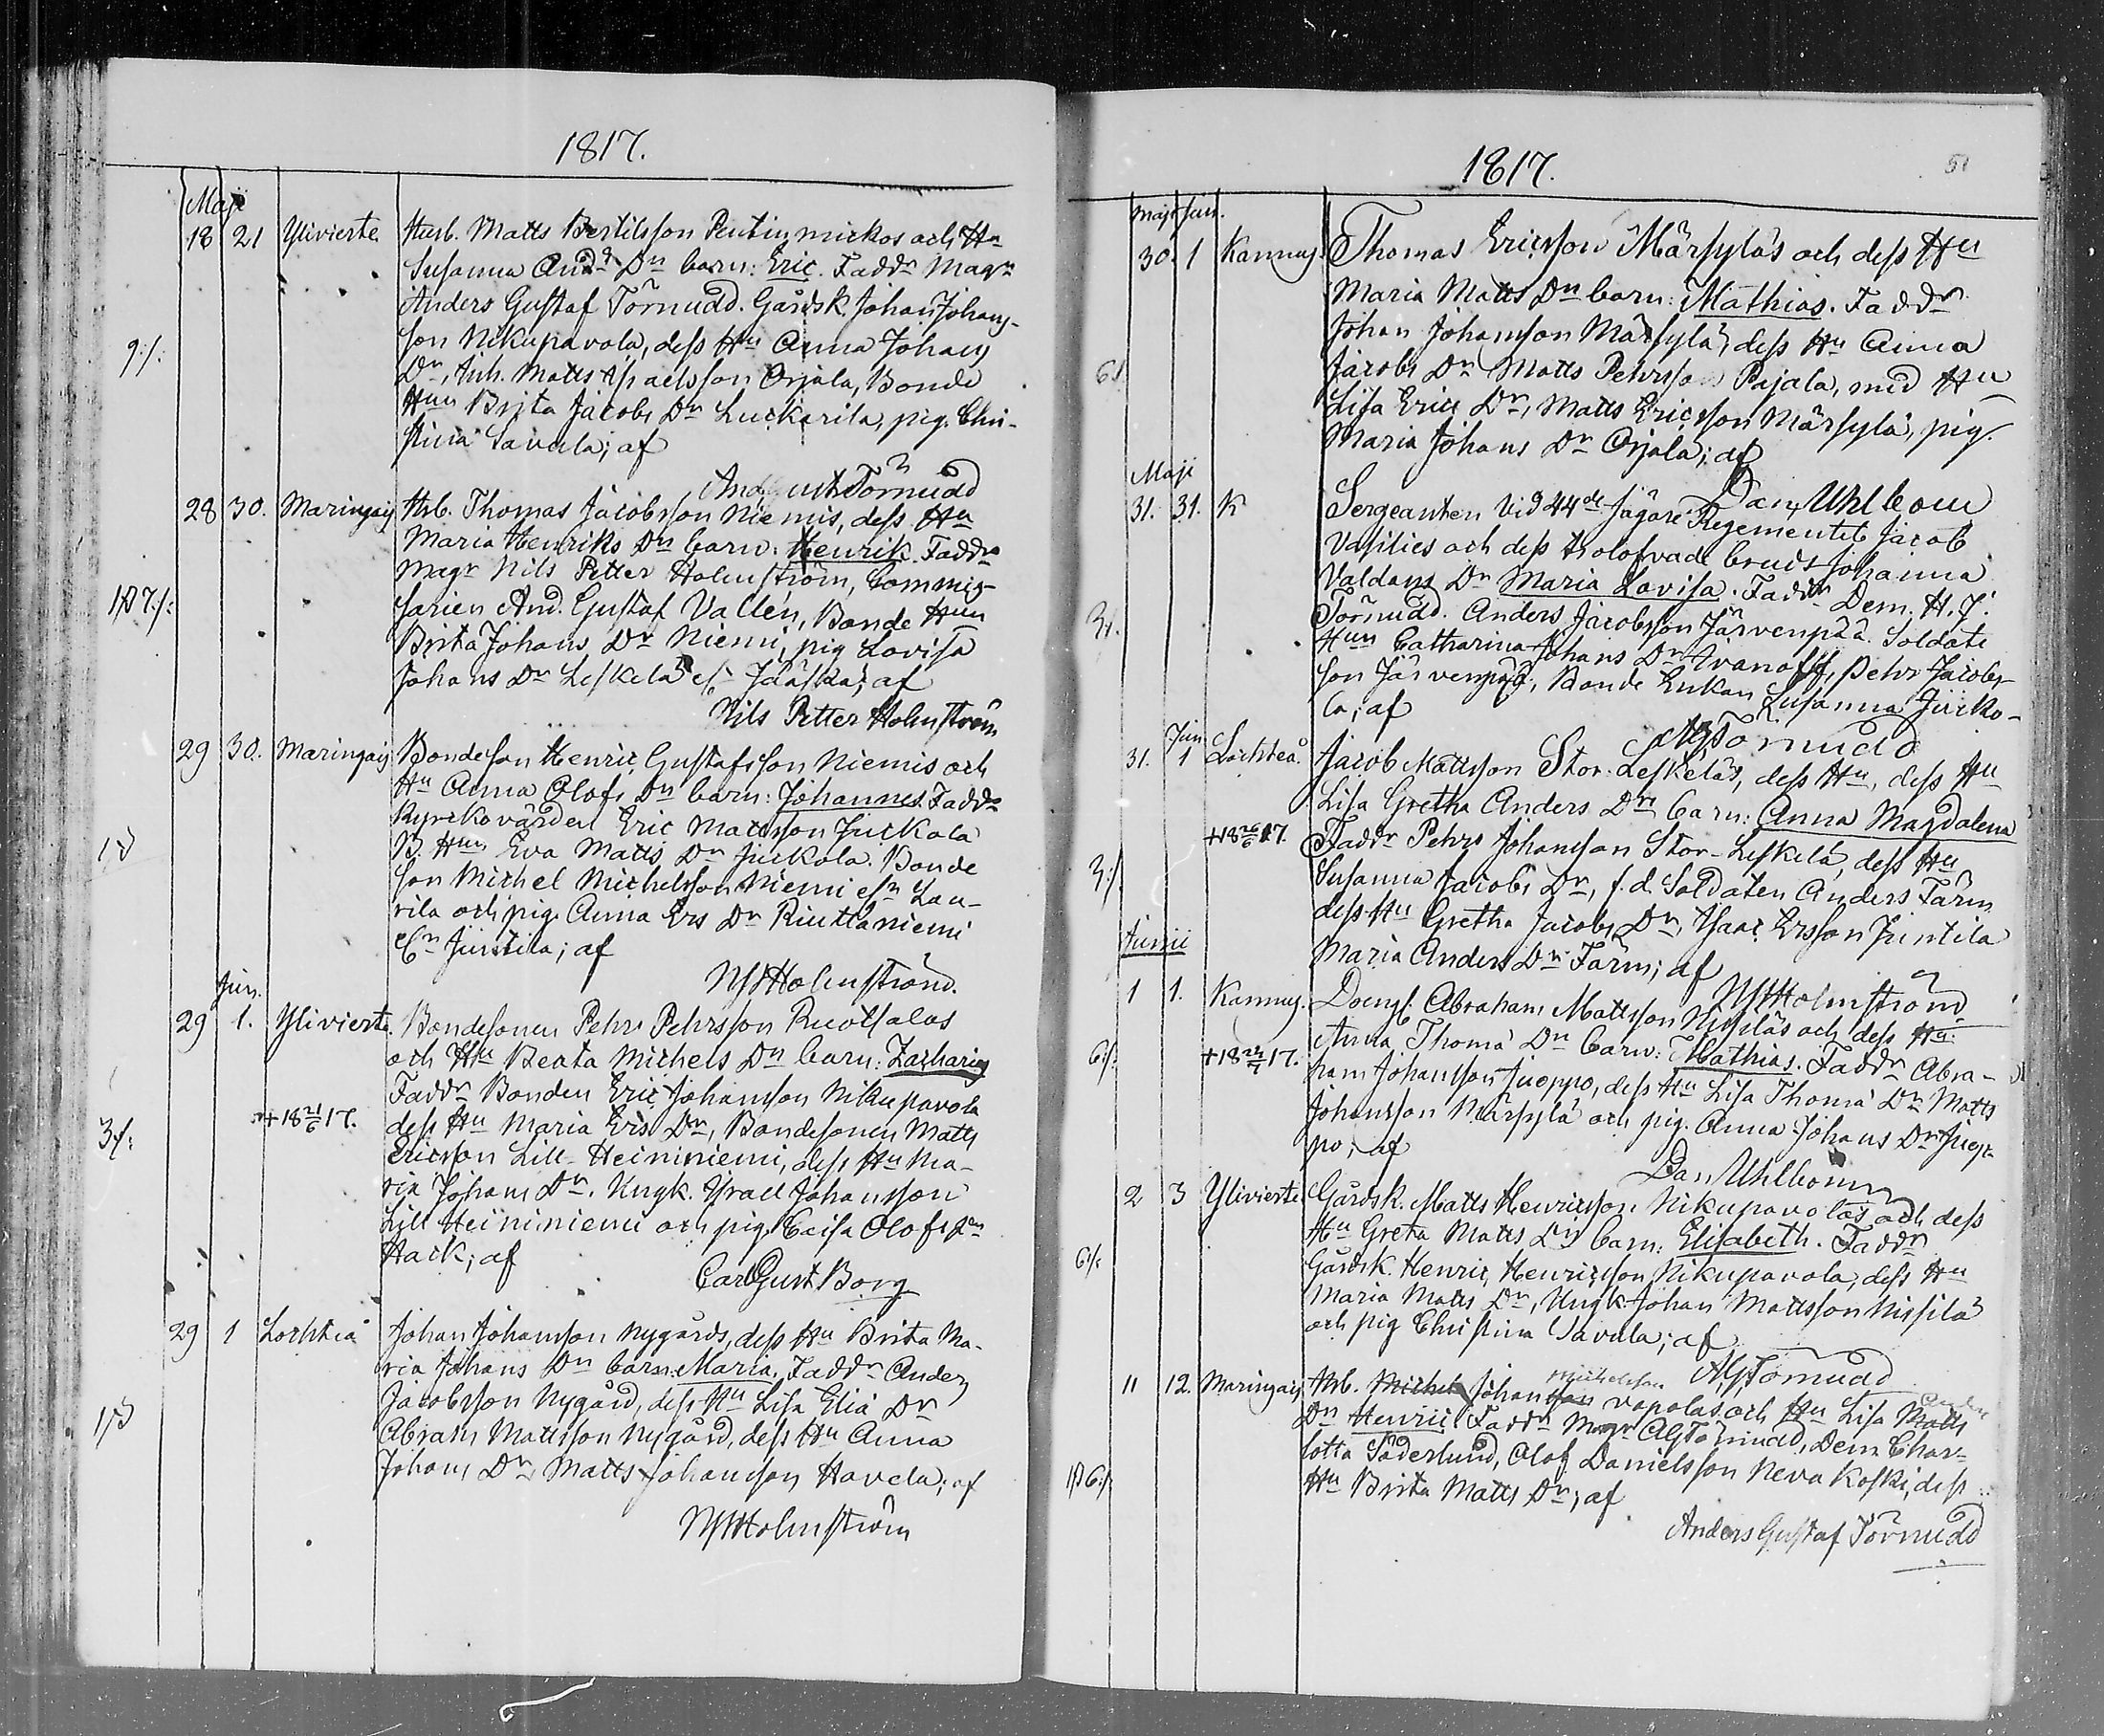 1817.
Maji
18 21 Ylivierte Husb. Matts Bertilsson Pentinmickos och Hu
Susanna And: Dr barn: Eric. Faddr Magr
Anders Gustaf Törnudd. Gårdsk. Johan Johans-
son Nikupavola, dess Hu Anna Johans
9:/: Dr, Inh. Matts Israelsson Orjala, Bonde
Hun Brita Jacobs Dr Luckarila, pig. Chri-
stina Savula; af
And Gust Törnudd
28 30. Maringais Hrb. Thomas Jacobsson Niemis, dess Hu
Maria Henriks Dr barn: Henrik. Faddr
Magr Nils Petter Holmström, Commis-
sarien And. Gustaf Vallén, Bonde Hun
Brita Johans Dr Niemi, pig Lovisa
Johans Dr Leskelä el. Jääskä; af
Nils Petter Holmström
29 30. Maringais Bondeson Henric Gustafsson Niemis och
Hu Anna Olofs Dr barn: Johannes. Faddr
Kyrckovärden Eric Mattsson Juckola
B. Hun Eva Matts Dr Juckola. Bonde
son Michel Michelsson Niemi
och pig. Anna Ers Dr Riuttaniemi
Juntila; af
NPHolmström.
Jun.
29 1. Ylivierte. Bondesonen Pehr Pehrsson Ruotsalas
och Hu Beata Michels Dr barn: Zacharias
Faddr Bonden Eric Johansson Nikupavola
+18 21/6 17. dess Hu Maria Ers Dr, Bondesonen Matts
3:/: Ericsson Lill-Heininiemi, dess Hu Ma-
ria Johans Dr. Ungk. Israel Johansson
Lill Heininiemi och pig. Caisa Olofs Dr
Hack; af
Carl Gust Borg
29 1 Lochteå Johan Johansson Nygårds, dess Hu Brita Ma-
ria Johans Dr barn: Maria. Faddr Anders
Jacobsson Nygård, dess Hu Lisa Eliæ Dr
Abrah: Mattsson Nygård, dess Hu Anna
Johans Dr, Matts Johansson Havela; af
NPHolmström
1817.
51
Maji Jun.
30. 1 Kannus. Thomas Ericsson Märsyläs och dess Hu
Maria Matts Dr barn: Mathias. Faddr
Johan Johansson Märsylä, dess Hu Anna
Jacobs Dr Matts Pehrsson Pajala, med Hu
Lisa Erics Dr, Matts Ericsson Märsylä, pig.
Maria Johans Dr Orjala; af
Dan. Uhlbom
Maji
31. 31. K Sergeanten vid 44de Jägare Regementet Jacob
Vasilies och dess trolofvade brud Johanna
Valdans Dr Maria Lovisa. Faddr Dem. H. J.
Törnudd. Anders Jacobsson Järvenpää. Soldate
Hun Catharina Johans Dr Ivanoff, Pehr Jacobs-
son Järvenpää, Bonde Enkan Susanna Jurko-
la; af
AGTörnudd
Jun
31. 1 Lochteå. Jacob Mattsson Stor-Leskeläs, dess Hu, dess Hu
Lisa Gretha Anders Dr barn: Anna Magdalena
+18 26/6 17. Faddr Pehr Johansson Stor-Leskelä, dess Hu
3:/: Susanna Jacobs Dr, f.d. Soldaten Anders Färm
dess Hu Gretha Jacobs Dr, Isaac Ersson Juntila
Maria Anders Dr Färm; af
NPHolmström
Junii
1 1. Kannus. Drengs. Abraham Mattsson Nissiläs och dess Hu
Anna Thomæ Dr barn: Mathias. Faddr Abra-
6:/: +18 24/7 17. ham Johansson Jueppo, dess Hu Lisa Thomæ Dr Matts
Johansson Märsylä och pig. Anna Johans Dr Juep-
po; af
Dan Uhlbom
2 3 Ylivierte Gårdsk. Matts Henricsson Nikupavolas och dess
Hu Greta Matts Dr barn: Elisabeth. Faddr
6:/: Gårdsk. Henric Henricsson Nikupavola, dess Hu
Maria Matts Dr, Ungk. Johan Mattsson Nissilä
och pig Christina Savula; af
AGTörnudd
11 12. Maringais Hrb. Michel Johansson Michelsson Vapolas och Hu Lisa Matts Anders
Dr Henric. Faddr Magr AGTörnudd, Dem. Char-
lotta Söderlund, Olof Danielsson Nevakoski, dess
Hu Brita Matts Dr; af
Anders Gustaf Törnudd